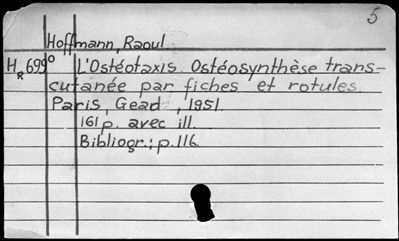 5
Hoffmann, Raoul
HR 699° L'Ostéotaxis Ostéosynthèse trans-
cutanée par fiches et rotules
Paris, Gead, 1951.
161 p. avec ill.
Bibliogr.: p. 116.